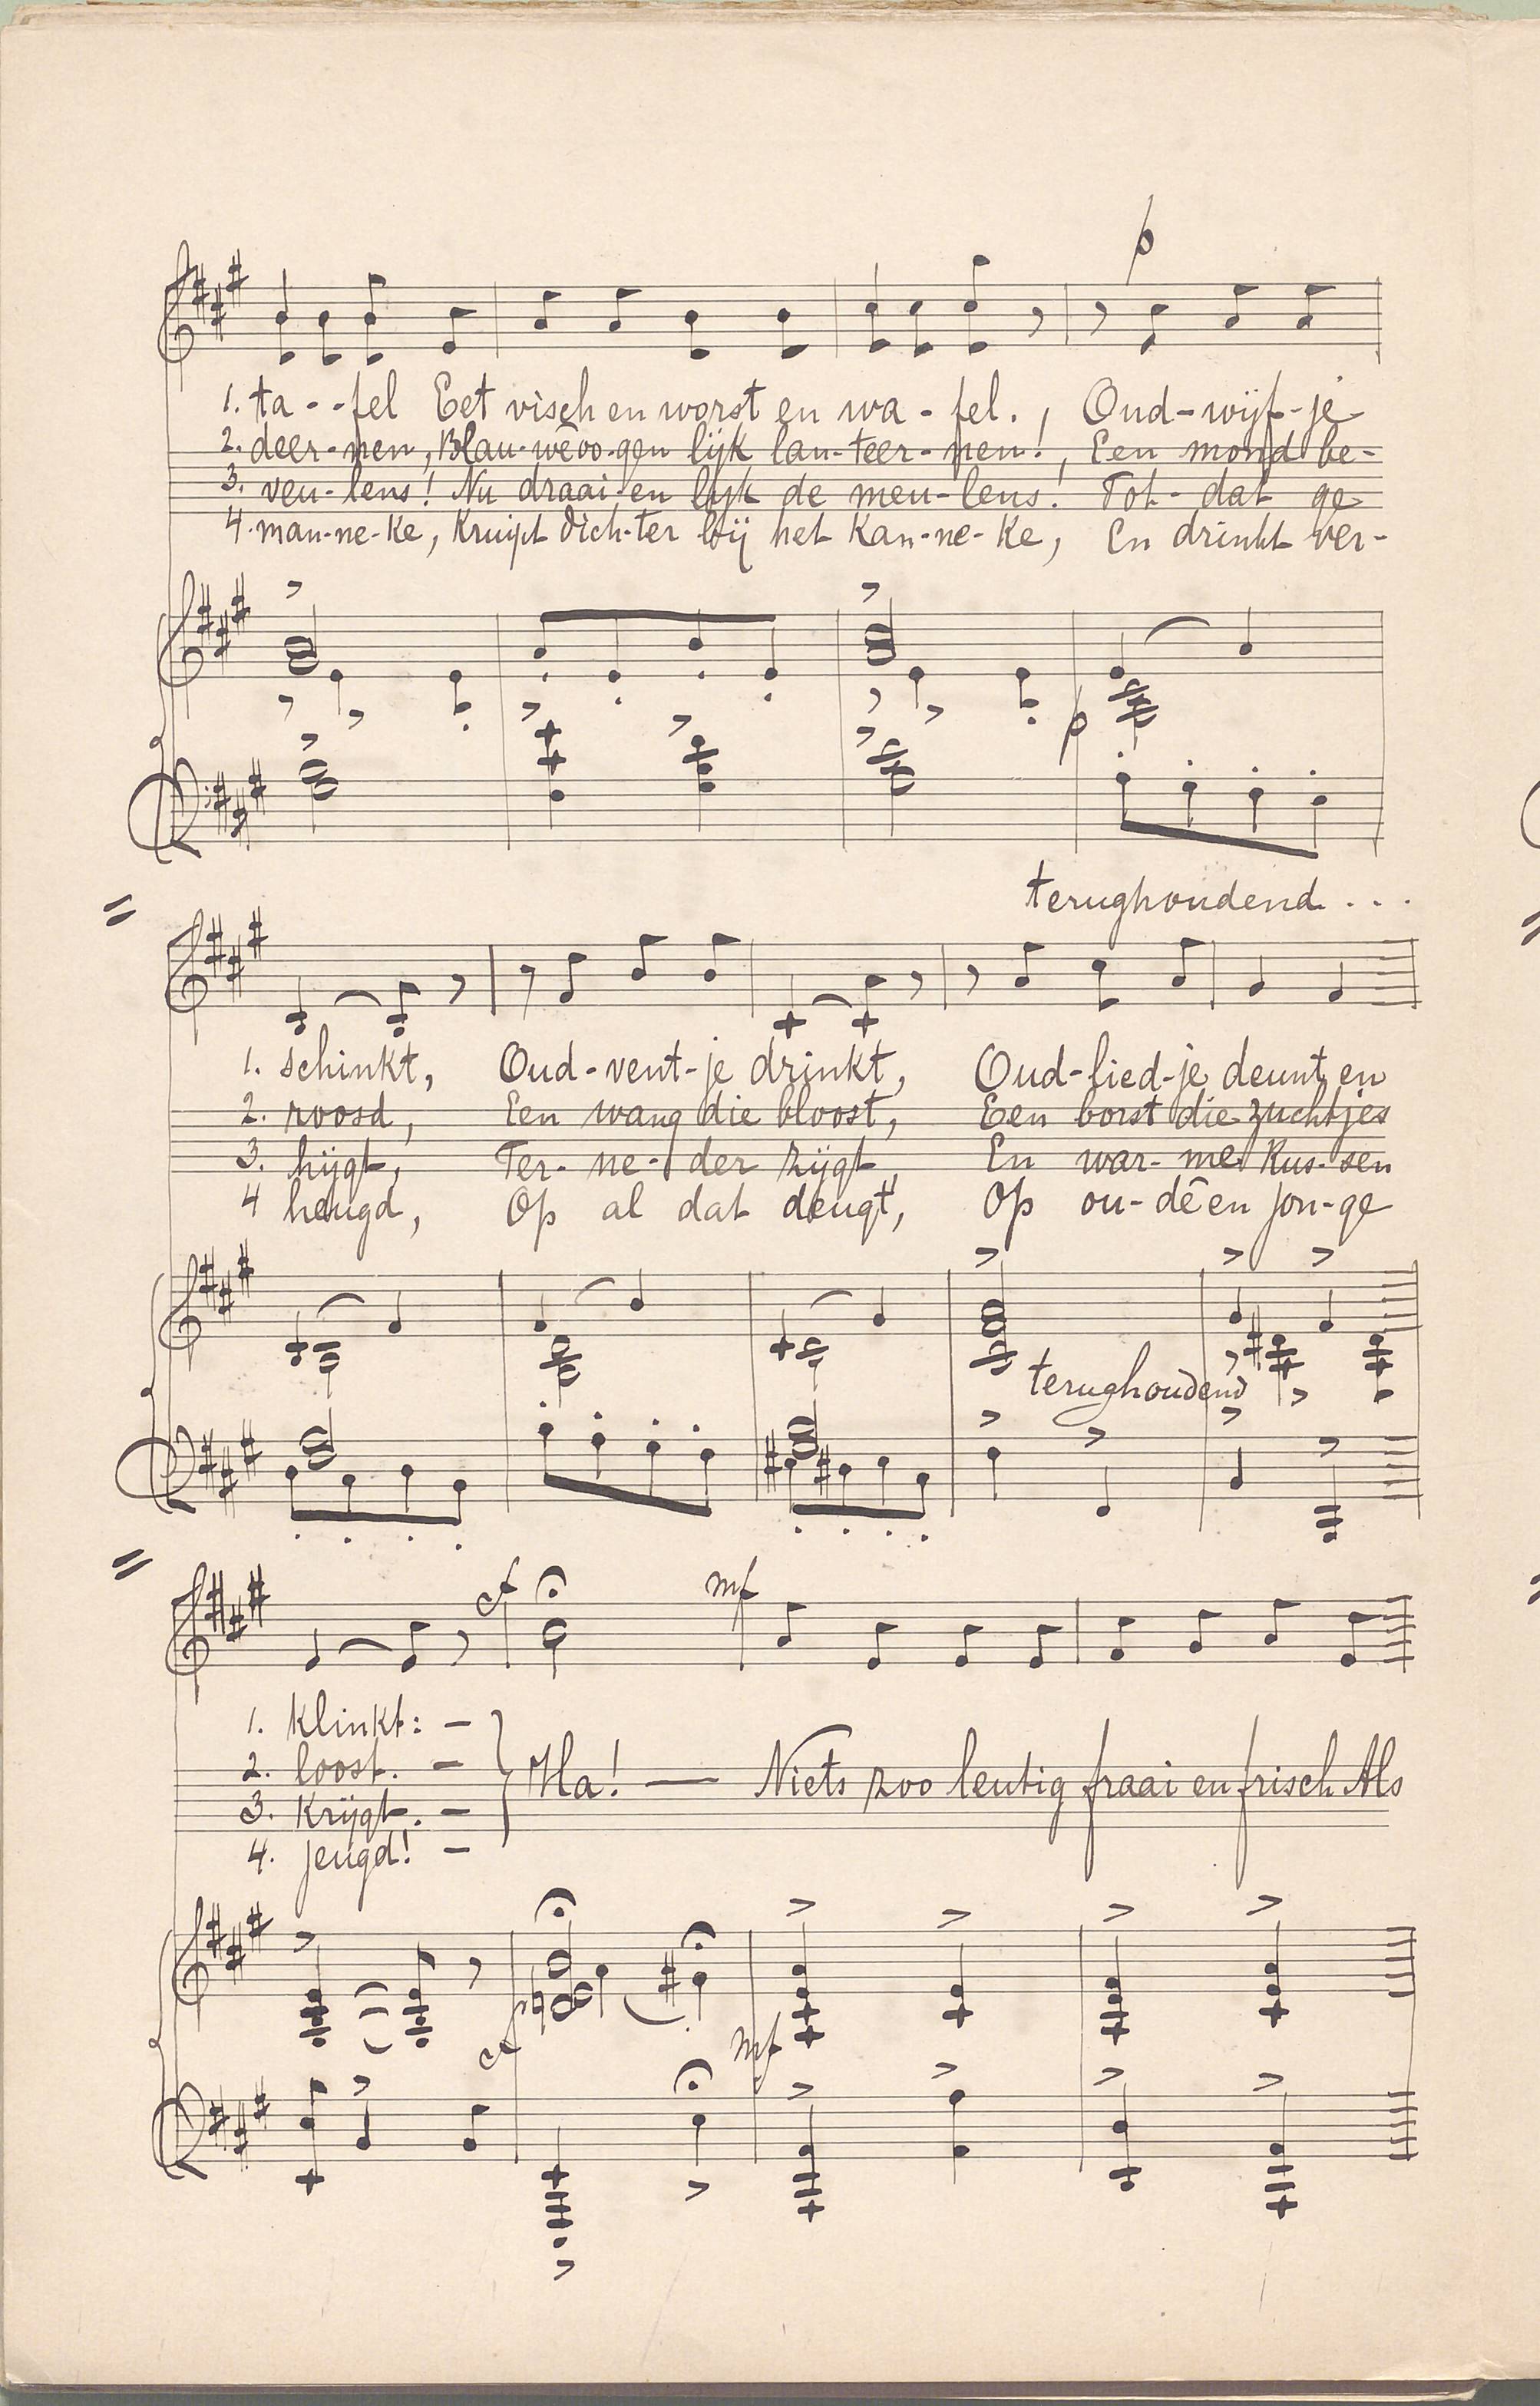 p
1. ta - - fel Eet visch en worst en wa - fel. , Oud - wijf - je
2. deer - nen, Blau - wê oo - gen lijk lan - teer - nen! , Een mond be -
3. veu - lens! Nu draai - en lijk de meu - lens! Tot - dat ge
4. man - ne - ke, Kruipt dich - ter bij het kan - ne - ke, En drinkt ver -
p
terughoudend. . .
1. schinkt, Oud - vent - je drinkt, Oud - lied - je deunt en
2. roosd, Een wang die bloost, Een borst die zuchtjes
3. hijgt, Ter - ne - der zijgt, En war - me kus - sen
4 heugd, Op al dat deugt, Op ou - dê en jon - ge
terughoudend
cf mf
1. klinkt: —
2. loost. —
3. krijgt. —
4. jeugd! —
Ha! — Niets zoo leutig fraai en frisch Als
cf mf